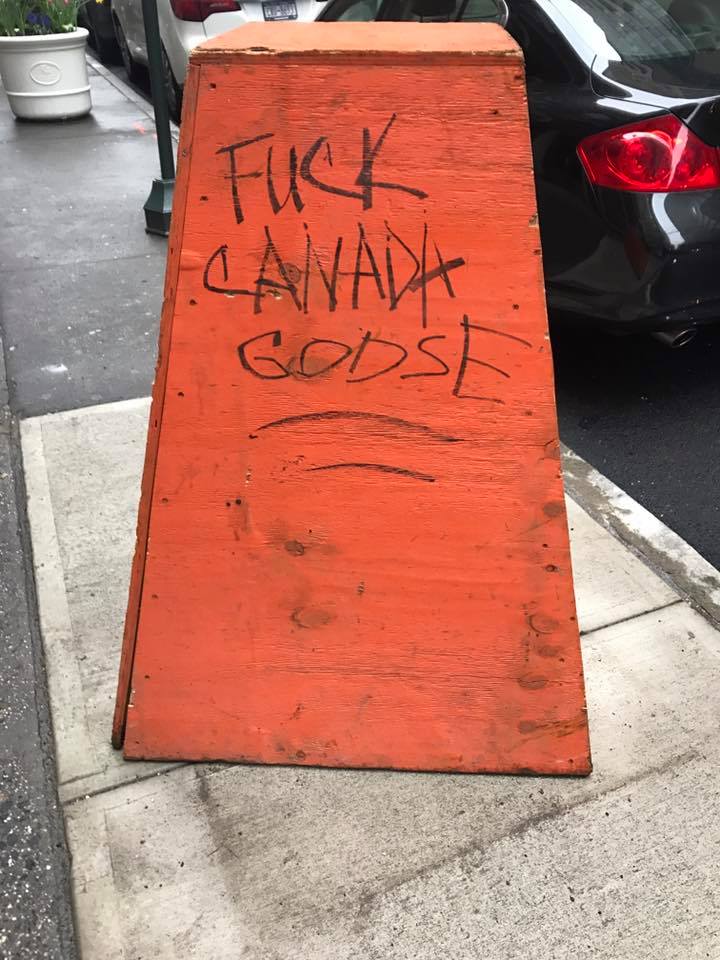 FUCK
CANADA
GODSE